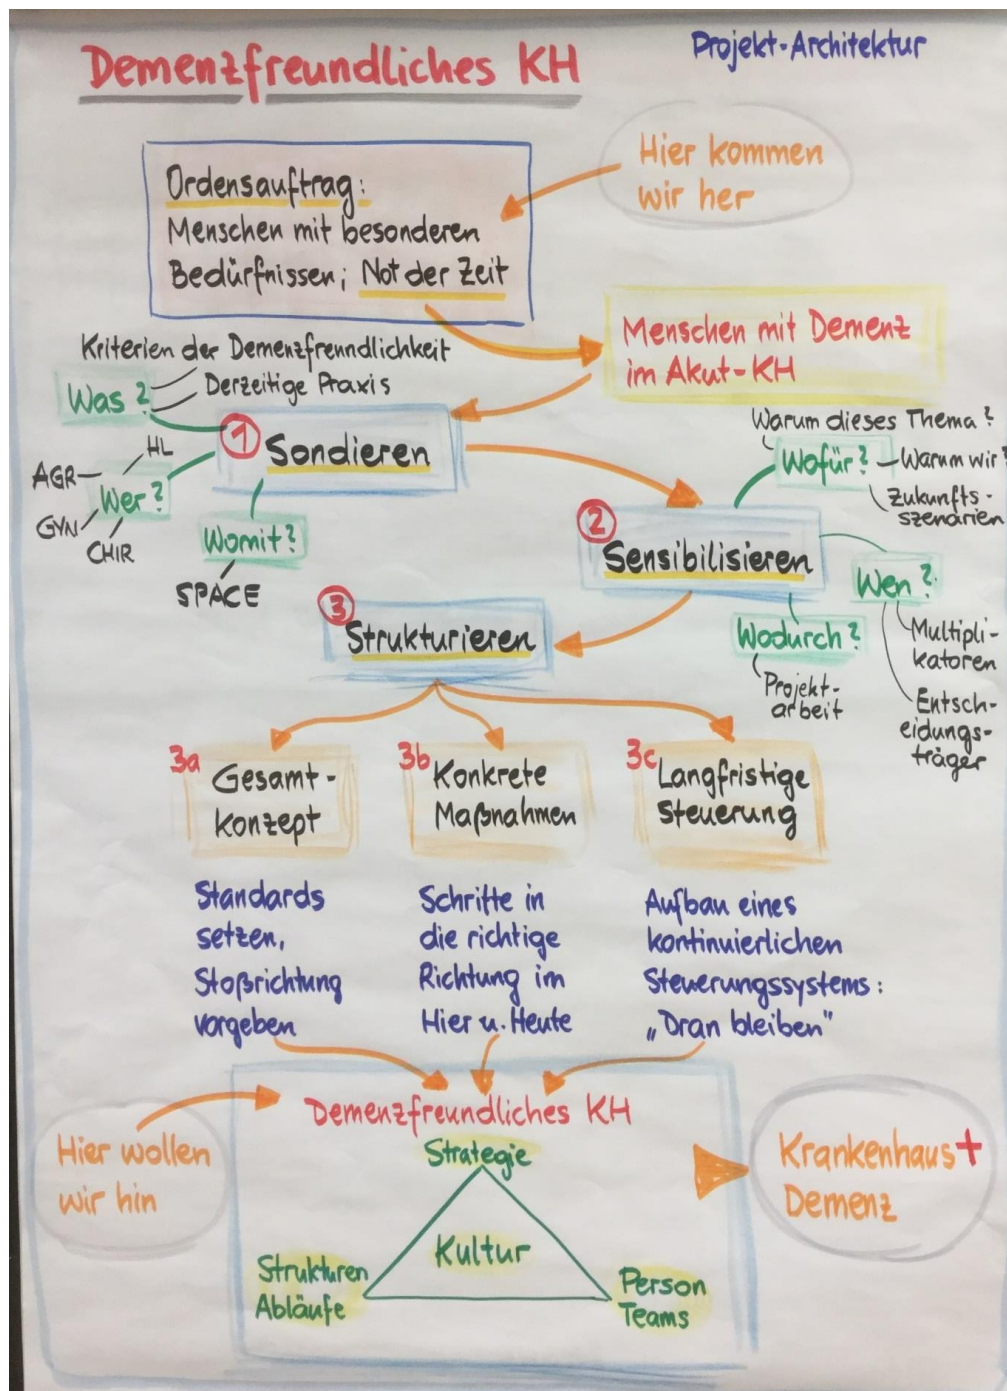 Demenzfreundliches KH
Projekt-Architektur
Hier kommen
wir her
Ordensauftrag:
Menschen mit besonderen
Bedürfnissen; Not der Zeit
Menschen mit Demenz
im Akut-KH
Kriterien der Demenzfreundlichkeit
Derzeitige Praxis
Was?
1 Sondieren
HL
AGR
Wer?
GYN
CHIR
Womit?
SPACE
Warum dieses Thema?
Wofür?
Warum wir?
Zukunfts-
szenarien
2 Sensibilisieren
Wen?
Multipli-
katoren
Entsch-
eidungs-
träger
Wodurch?
Projekt-
arbeit
3 Strukturieren
3a Gesamt-
konzept
3b Konkrete
Maßnahmen
3c Langfristige
Steuerung
Standards
setzen,
Stoßrichtung
vorgeben
Schritte in
die richtige
Richtung im
Hier u. Heute
Aufbau eines
kontinuierlichen
Steuerungssystems:
„Dran bleiben"
Hier wollen
wir hin
Demenzfreundliches KH
Strategie
Kultur
Strukturen
Abläufe
Person
Teams
Krankenhaus +
Demenz